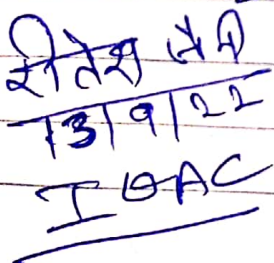 रीतेश जैन
13/9/22
IQAC